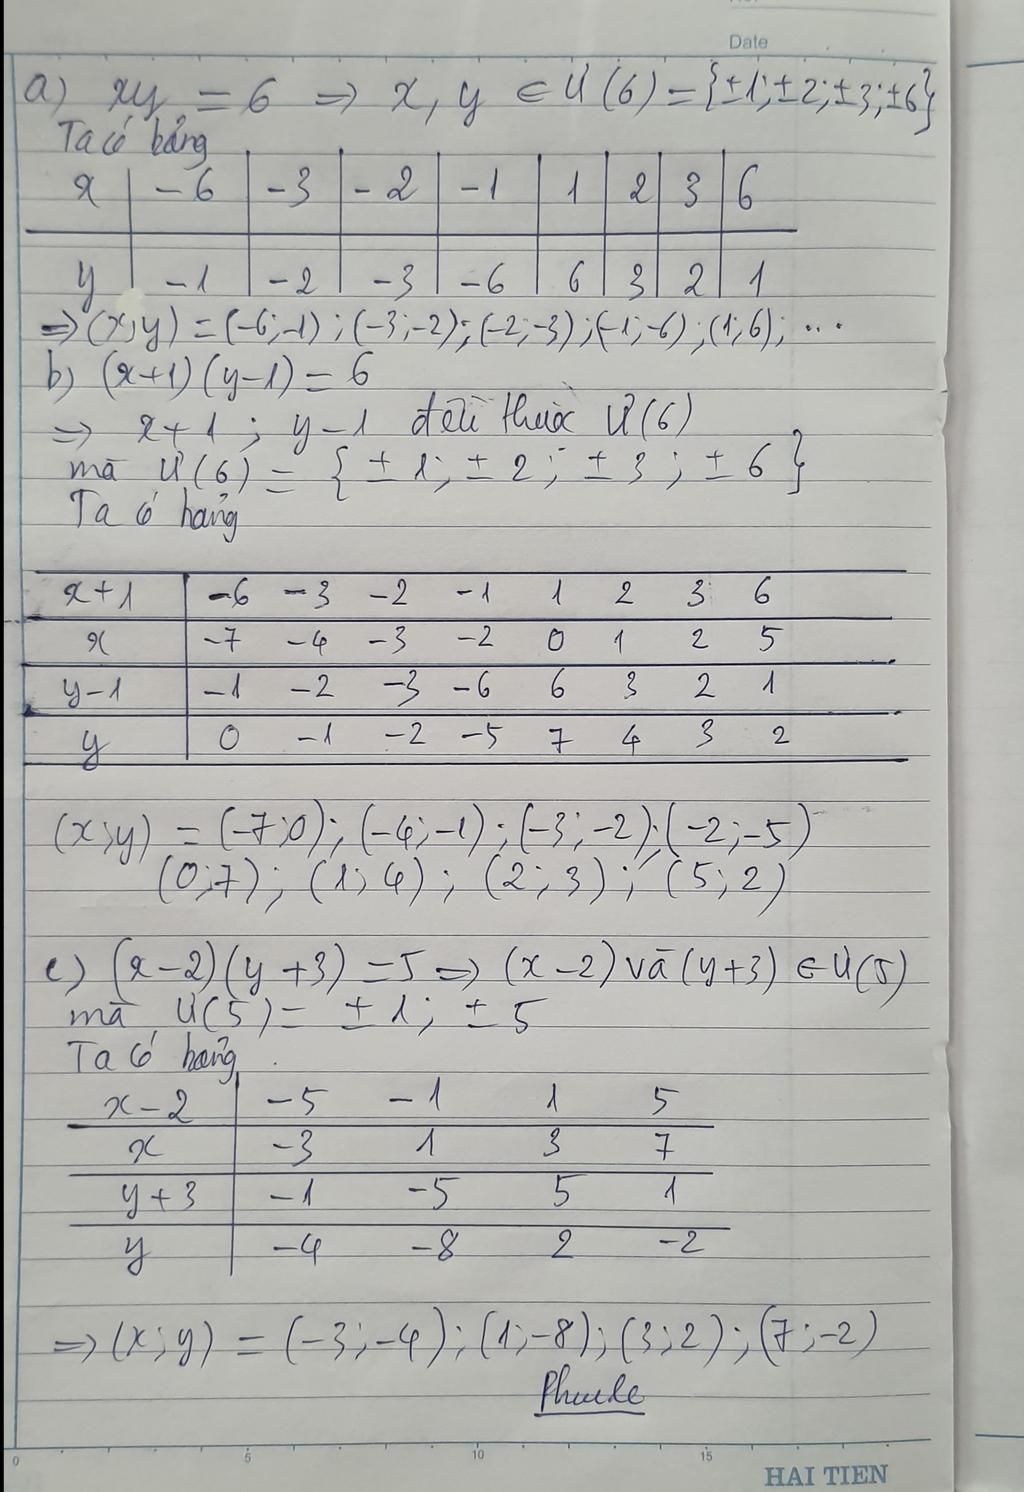 Date
a) xy = 6 ⇒ x, y ∈ Ư(6) = {±1; ±2; ±3; ±6}
Ta có bảng
x -6 -3 -2 -1 1 2 3 6
y -1 -2 -3 -6 6 3 2 1
⇒ (x;y) = (-6;-1); (-3;-2); (-2;-3); (-1;-6); (1;6); ...
b) (x+1)(y-1) = 6
⇒ x+1; y-1 đều thuộc Ư(6)
mà Ư(6) = {±1; ±2; ±3; ±6}
Ta có bảng
x+1 -6 -3 -2 -1 1 2 3 6
x -7 -4 -3 -2 0 1 2 5
y-1 -1 -2 -3 -6 6 3 2 1
y 0 -1 -2 -5 7 4 3 2
(x;y) = (-7;0); (-4;-1); (-3;-2); (-2;-5)
(0;7); (1;4); (2;3); (5;2)
c) (x-2)(y+3) = 5 ⇒ (x-2) và (y+3) ∈ Ư(5)
mà Ư(5) = ±1; ±5
Ta có bảng
x-2 -5 -1 1 5
x -3 1 3 7
y+3 -1 -5 5 1
y -4 -8 2 -2
⇒ (x;y) = (-3;-4); (1;-8); (3;2); (7;-2)
0 5 10 15
HAI TIEN